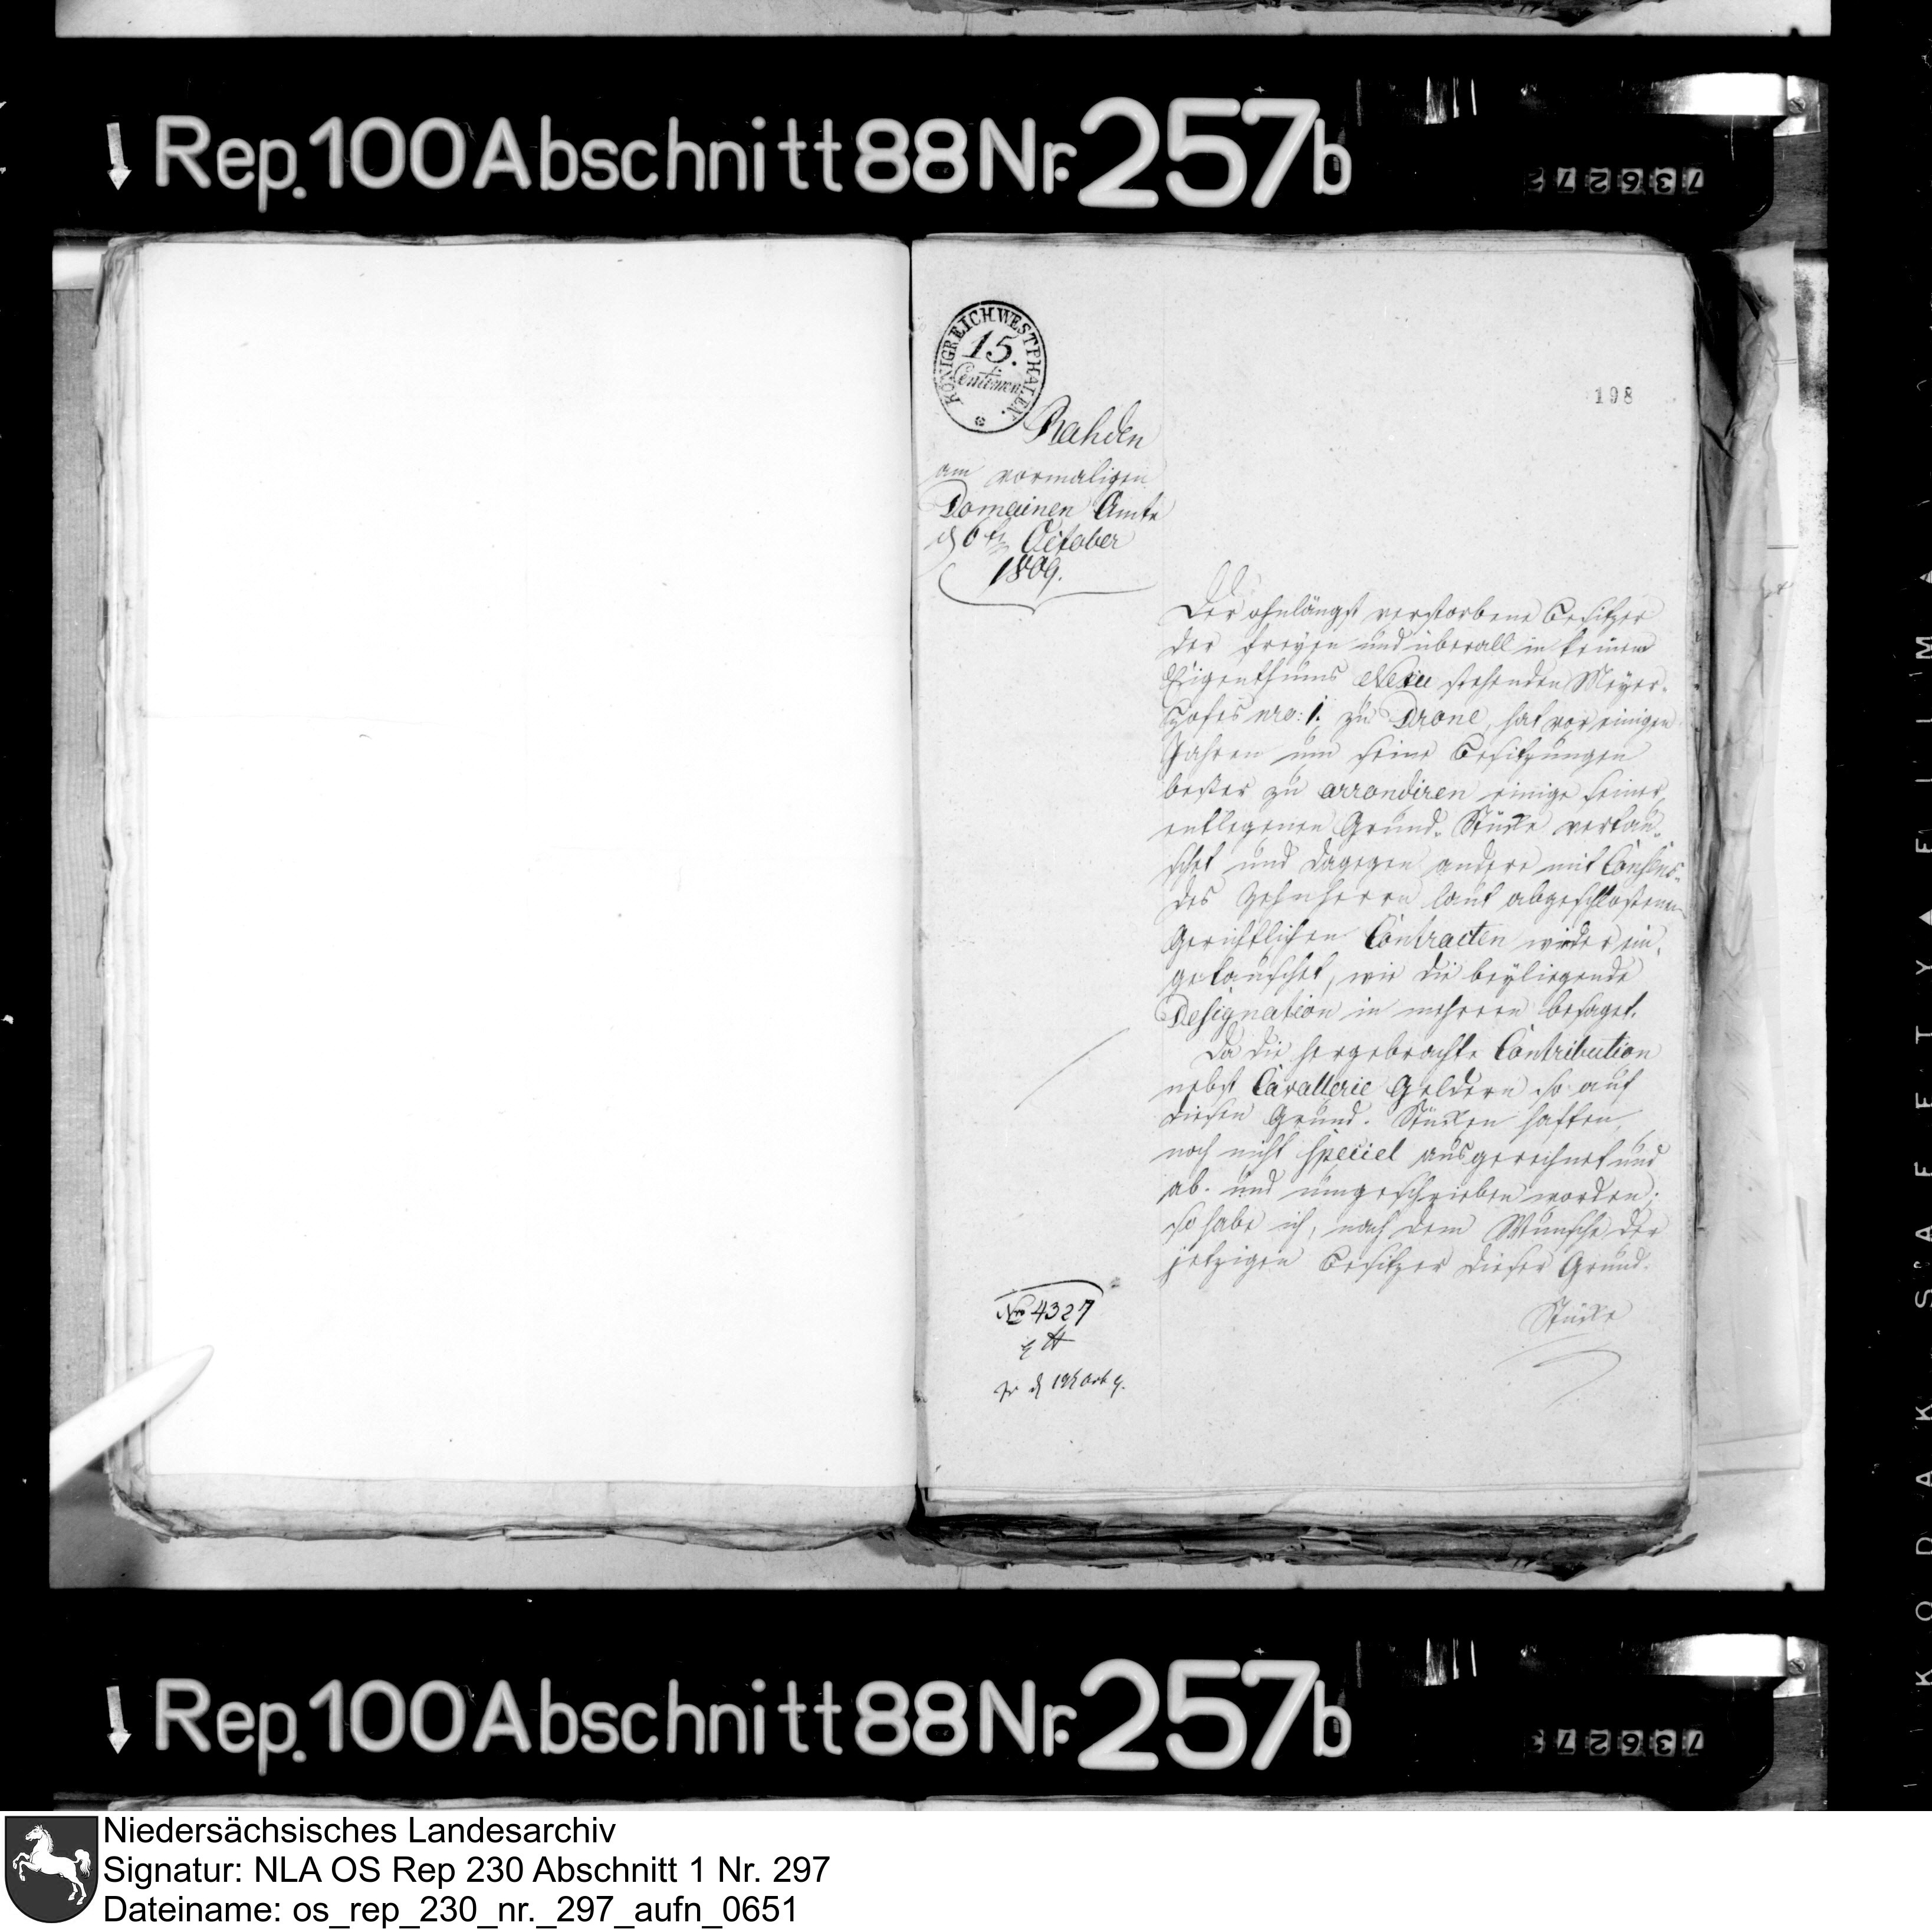 Rep. 100 Abschnitt 88 Nr. 257b
736272
KÖNIGREICH WESTPHALEN.
15.
Centimen
198
Rahden
am vormaligen
Domainen Amte
d 6ten October
1809.
Der ohnlängst verstorbene Besitzer
des freyen und überall in keinem
Eigenthums Nexu stehenden Meyer-
Hofes nro: 1. zu Drone, hat vor einigen
Jahren um seine Besitzungen
beßer zu arrondiren einige seiner
entlegenen Grund-Stücke vertau-
schet und dagegen andere mit Consens
des Zehnherrn laut abgeschloßenen
Gerichtlichen Contracten wieder ein-
getauschet, wie die beyliegende
Designation in mehrern besaget.
Da die hergebrachte Contribution
nebst Cavallerie Geldern so auf
diesen Grund-Stücken haften,
noch nicht speciel ausgerechnet und
ab- und umgeschrieben worden;
so habe ich, nach dem Wunsche der
jetzigen Besitzer dieser Grund-
Stücke
No 4327
Rep. 100 Abschnitt 88 Nr. 257b
736273
KODAK SAFETY FILM
Niedersächsisches Landesarchiv
Signatur: NLA OS Rep 230 Abschnitt 1 Nr. 297
Dateiname: os_rep_230_nr._297_aufn_0651